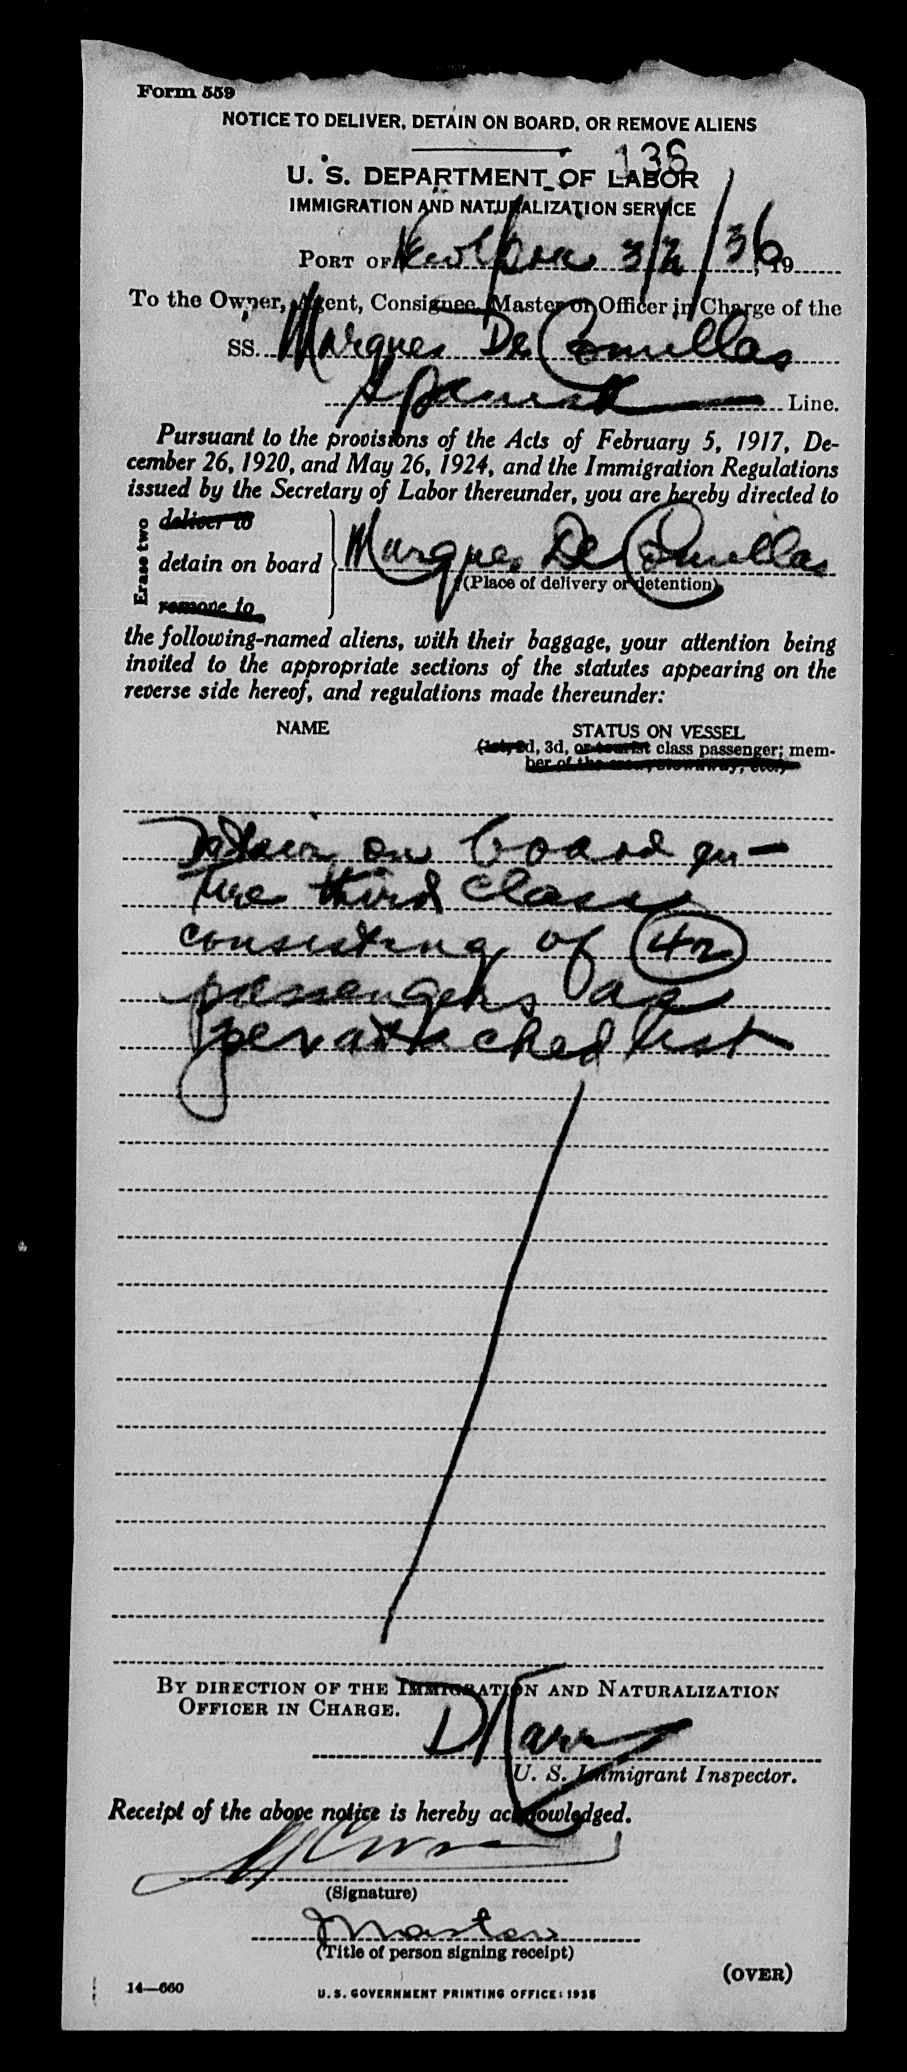 Form 559
NOTICE TO DELIVER, DETAIN ON BOARD, OR REMOVE ALIENS
136
U. S. DEPARTMENT OF LABOR
IMMIGRATION AND NATURALIZATION SERVICE
PORT OF New York 3/2/36, 19
To the Owner, Agent, Consignee, Master or Officer in Charge of the
SS. Marques De Comillas
Spanish Line.
Pursuant to the provisions of the Acts of February 5, 1917, De-
cember 26, 1920, and May 26, 1924, and the Immigration Regulations
issued by the Secretary of Labor thereunder, you are hereby directed to
Erase two
deliver to
detain on board Marques De Comillas
(Place of delivery or detention)
remove to
the following-named aliens, with their baggage, your attention being
invited to the appropriate sections of the statutes appearing on the
reverse side hereof, and regulations made thereunder:
NAME STATUS ON VESSEL
(1st, 2d, 3d, or tourist class passenger; mem-
ber of the crew, stowaway, etc.)
Detain on board en-
tire third class
consisting of 42
passengers as
per attached list
BY DIRECTION OF THE IMMIGRATION AND NATURALIZATION
OFFICER IN CHARGE.
U. S. Immigrant Inspector.
Receipt of the above notice is hereby acknowledged.
(Signature)
Master
(Title of person signing receipt)
(OVER)
14—660
U.S. GOVERNMENT PRINTING OFFICE: 1935